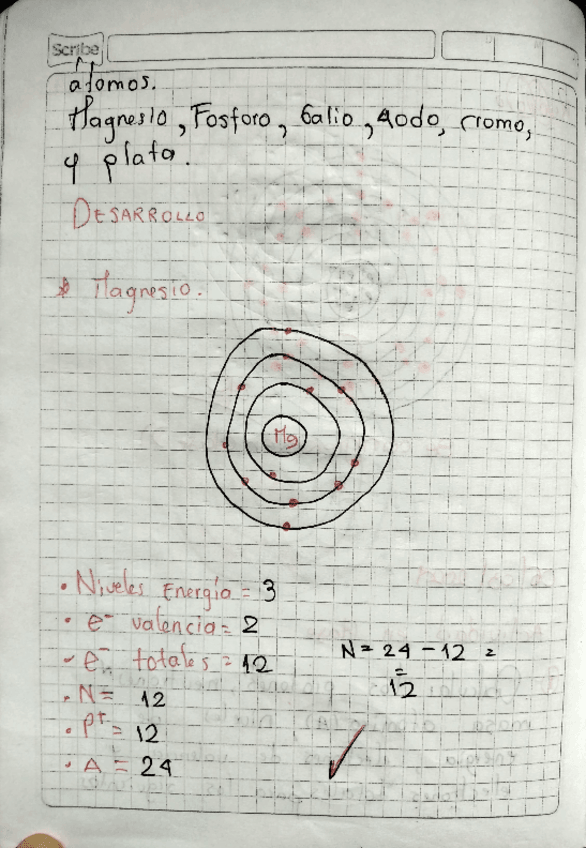 Scribe
átomos.
Magnesio, Fosforo, Galio, Yodo, cromo,
y plata.
DESARROLLO
* Magnesio.
Mg
• Niveles Energía = 3
• e⁻ valencia = 2
• e⁻ totales = 12
N = 24 - 12 =
= 12
• N = 12
• P⁺ = 12
• A = 24